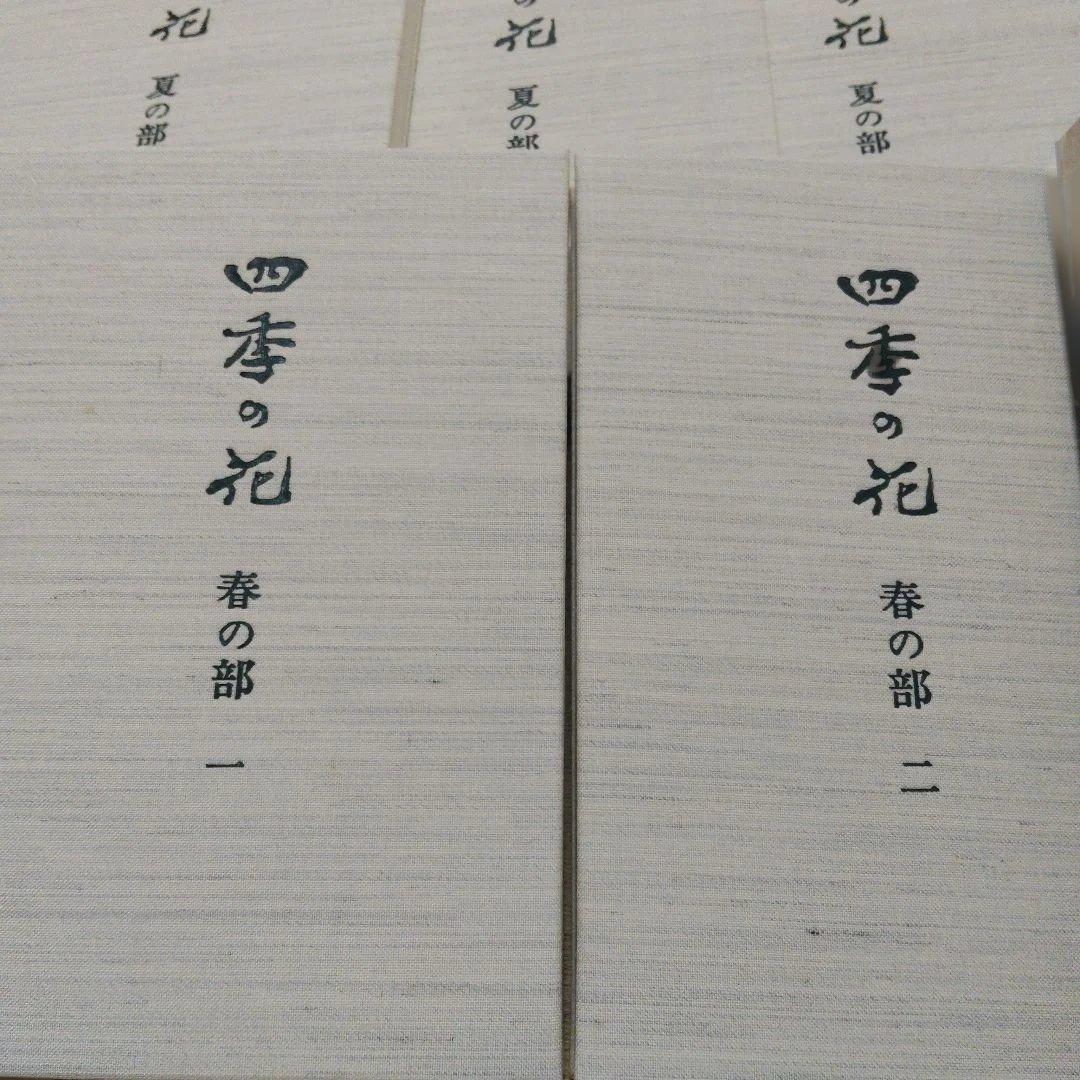 花
夏の部
の花
夏の部
の花
夏の部
四季の花
春の部 一
四季の花
春の部 二